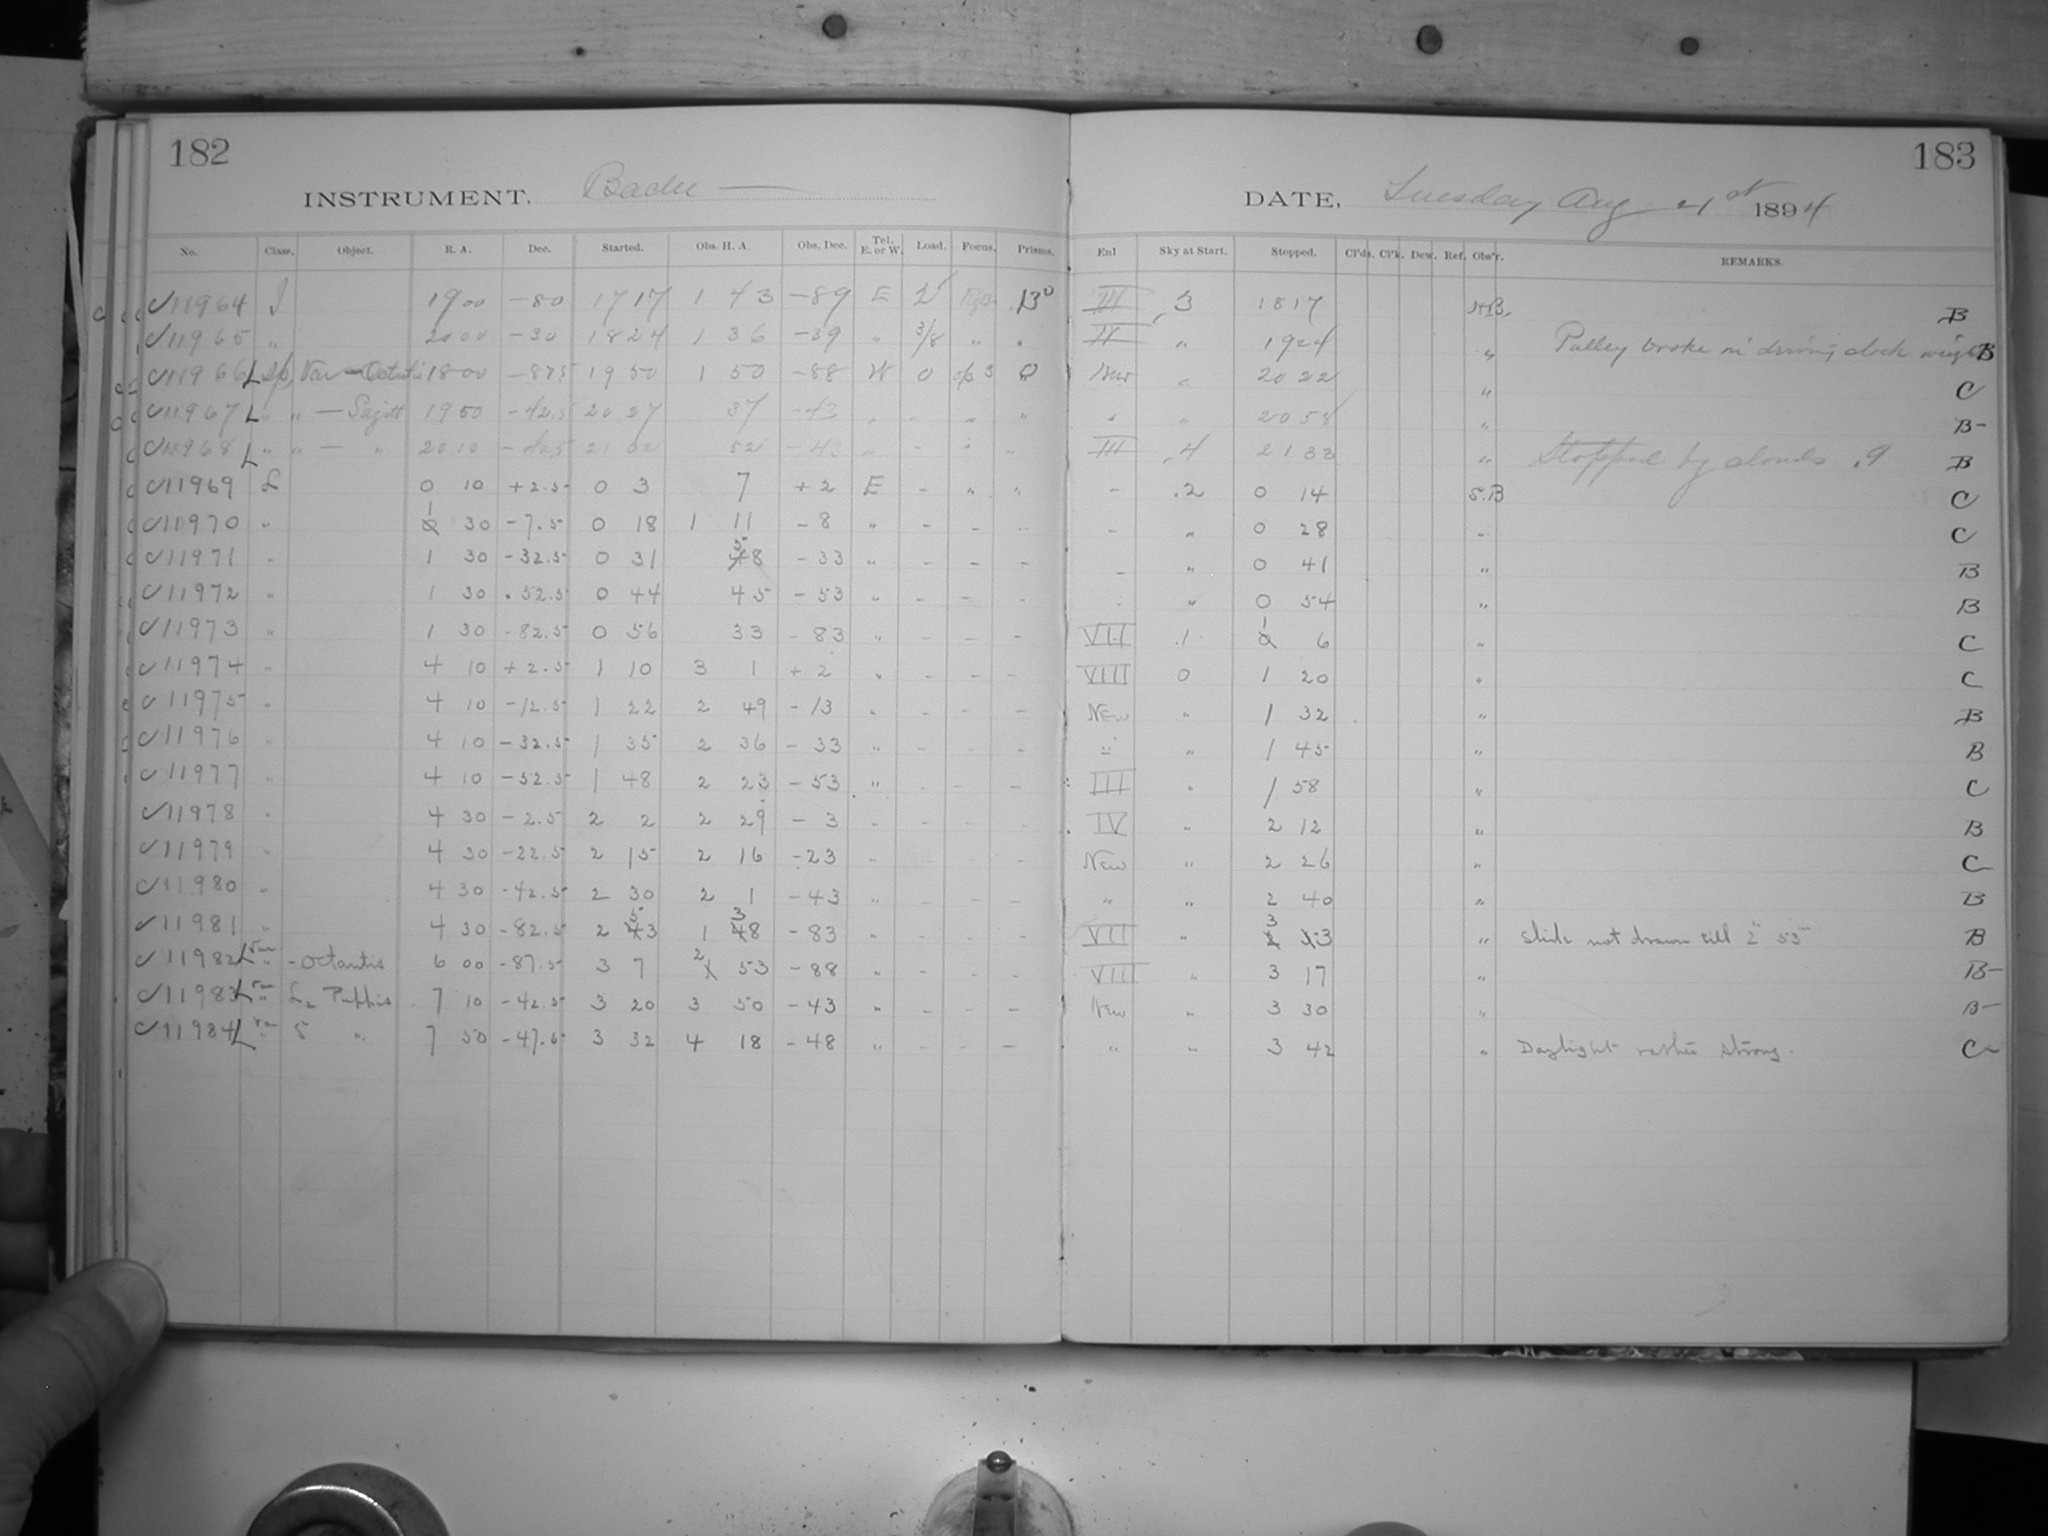 182
183
INSTRUMENT, Bache —
DATE, Tuesday Aug 21st 1894
No. Class. Object. R. A. Dec. Started. Obs. H. A. Obs. Dec. Tel. E. or W. Load. Focus. Prisms. Enl Sky at Start. Stopped. Cl'ds. Cl'k. Dew. Ref. Obs'r. REMARKS.
11964 1900 -80 1717 1 43 -89 E 2 III 3 1817 B
11965 " 2000 -30 1824 1 36 -39 " 3/8 " " " 1924 " Pulley broke on driving clock weight B
11966 L Sp. Var — Octantis 1800 -87.5 1950 1 50 -88 W 0 0 New " 2022 " C
11967 L " " — Sagitt 1950 -42.5 2027 37 -43 " " 2058 " B-
11968 L " " — " 2010 -42.5 2102 52 -43 III 4 2133 " Stopped by clouds .9 B
11969 L 0 10 +2.5 0 3 7 +2 E - " " - .2 0 14 S.B C
11970 " 1 30 -7.5 0 18 1 11 -8 " - - - - " 0 28 " C
11971 " 1 30 -32.5 0 31 58 -33 " - - - - " 0 41 " B
11972 " 1 30 -52.5 0 44 45 -53 " - - - " 0 54 " B
11973 " 1 30 -82.5 0 56 33 -83 " - - - VII .1 1 6 " C
11974 " 4 10 +2.5 1 10 3 1 +2 " - - - VIII 0 1 20 " C
11975 " 4 10 -12.5 1 22 2 49 -13 " - - - New " 1 32 " B
11976 " 4 10 -32.5 1 35 2 36 -33 " - - - " " 1 45 " B
11977 " 4 10 -52.5 1 48 2 23 -53 " - - - III " 1 58 " C
11978 " 4 30 -2.5 2 2 2 29 -3 - - - - IV " 2 12 " B
11979 " 4 30 -22.5 2 15 2 16 -23 " - - - New " 2 26 " C
11980 " 4 30 -42.5 2 30 2 1 -43 " - - - " " 2 40 " B
11981 " 4 30 -82.5 2 53 1 38 -83 " - - - VII " 3 3 " Slide not drawn till 2h 53m B
11982 L var " - Octantis 6 00 -87.5 3 7 2 53 -88 " - - - VIII " 3 17 " B-
11983 L var " L2 Puppis 7 10 -42.5 3 20 3 50 -43 " - - - New " 3 30 " B-
11984 L var " S " 7 50 -47.5 3 32 4 18 -48 " - - - " " 3 42 " Daylight rather strong. C-